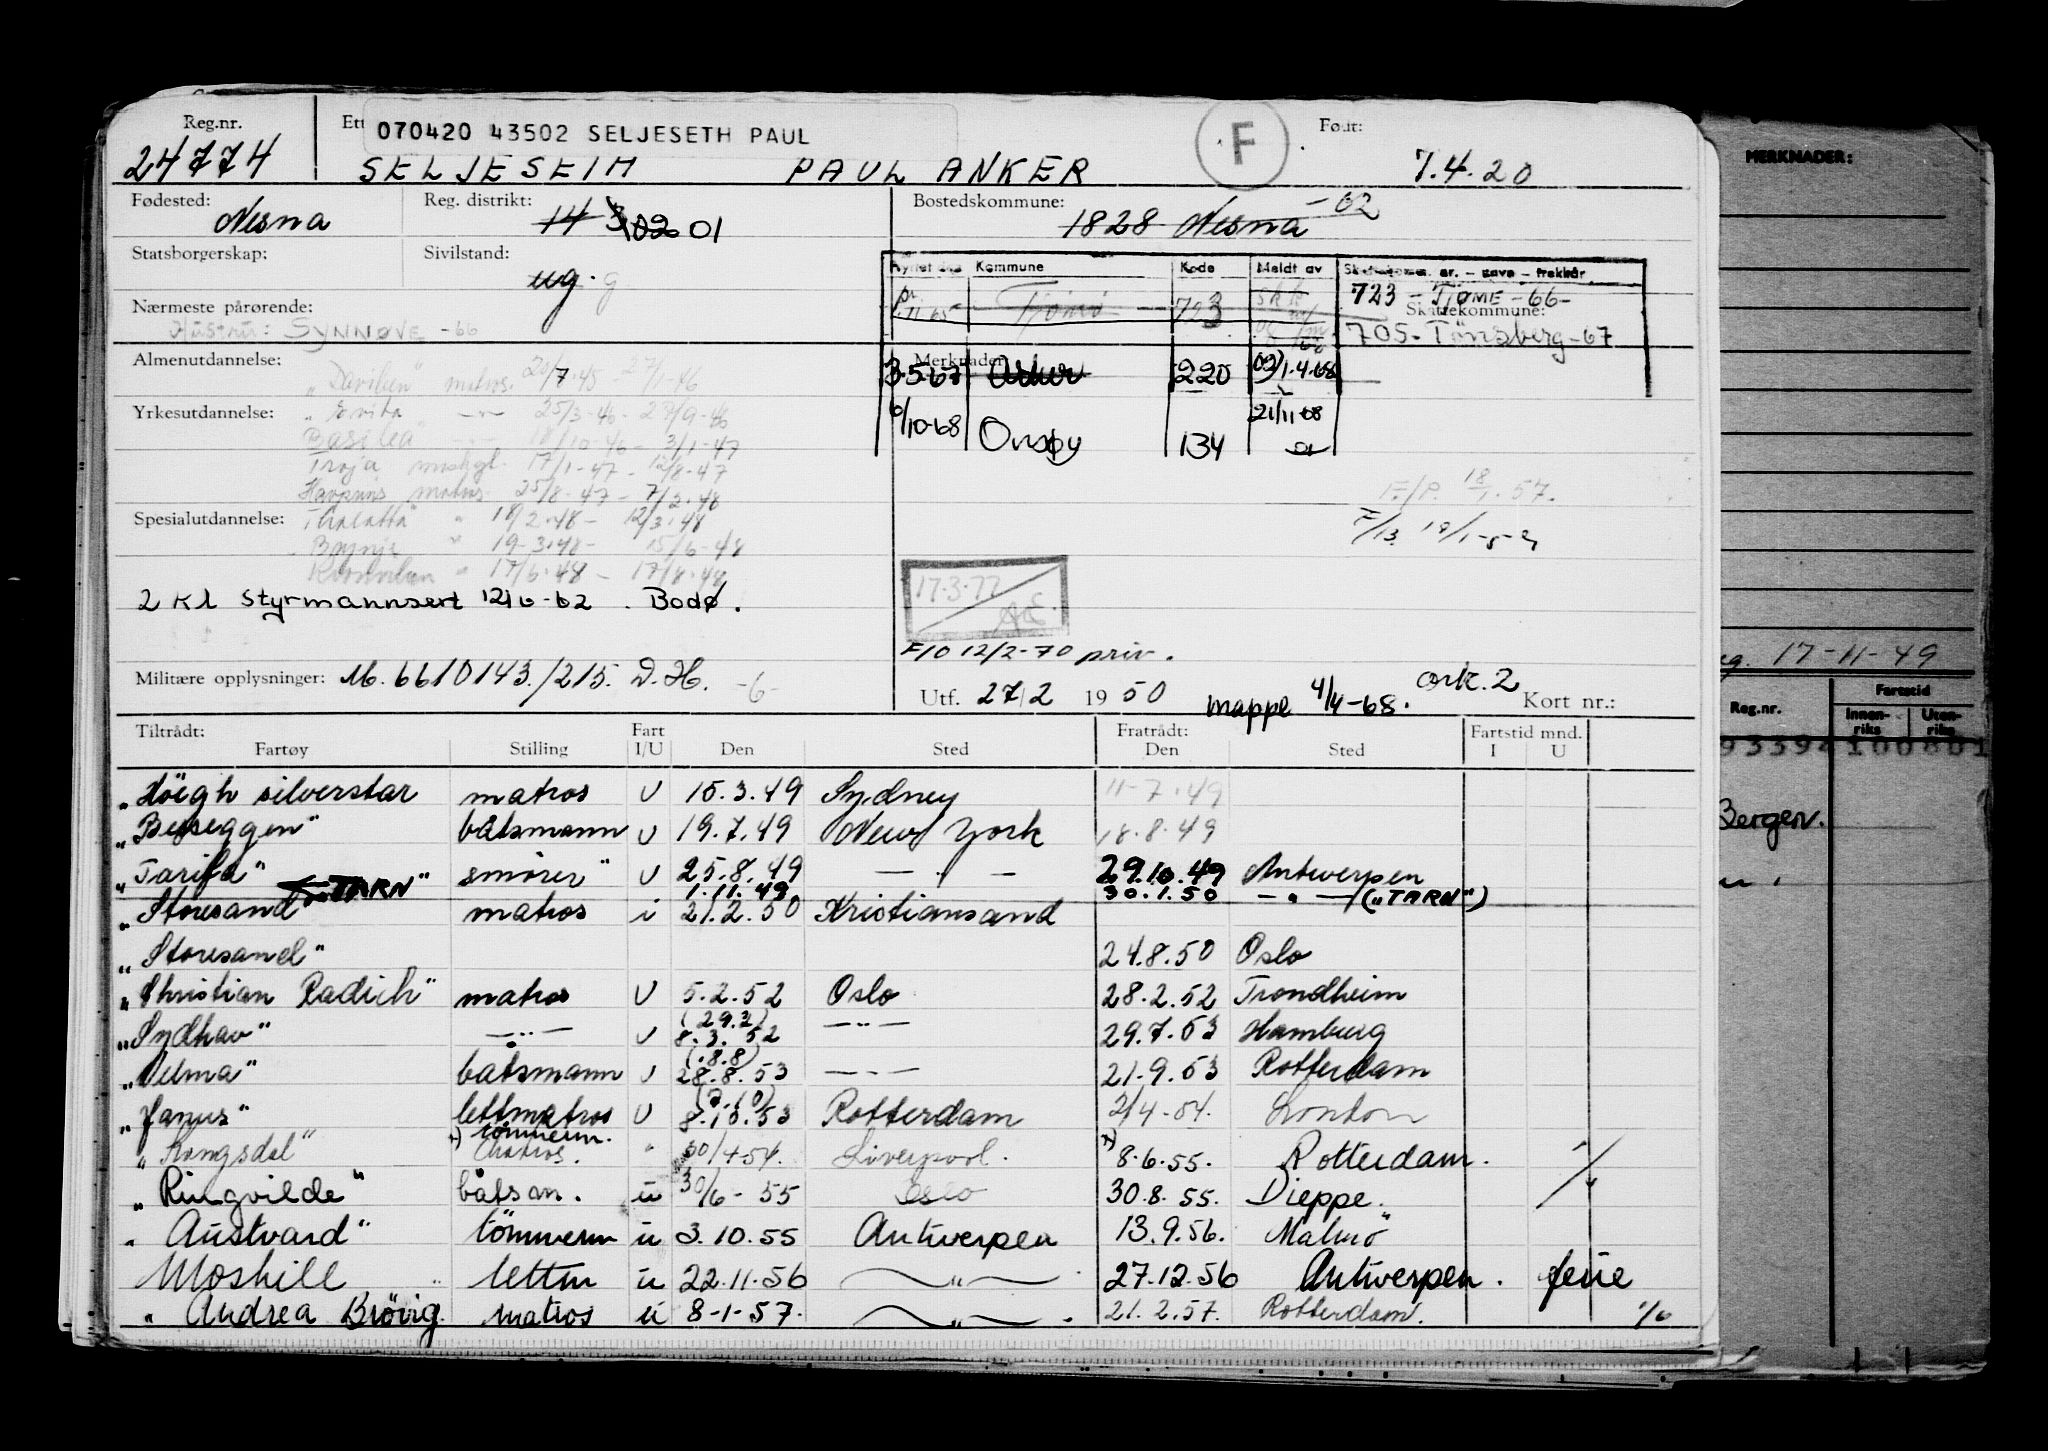 Reg.nr. Ett 070420 43502 SELJESETH PAUL F Født:
24774 SELJESETH PAUL ANKER 7.4.20
Fødested: Nesna Reg. distrikt: 14 3 02 01 Bostedskommune: 1828 Nesna -62
Statsborgerskap: Sivilstand: ug. g
Flyttet Kommune Kode Meldt av
723 723 - TJØME -66-
Nærmeste pårørende: Skattekommune:
Hustru: SYNNØVE -66 705- Tönsberg -67
Almenutdannelse: Merknader
matros. 20/7.45 - 27/1-46
3.5.67 Asker 220 09/1.4.68
Yrkesutdannelse: "Evita 25/3-46 - 28/9-46
6/10-68 Onsøy 134 21/11-68
Basilea 18/10-46 - 3/1-47
Troja 17/1-47 - 12/8-47
Havprins matros 25/8-47 - 7/2.48
F/P. 18/1.57.
Spesialutdannelse: Thalatta " 18/2.48 - 12/3.48
Brynje " 19-3.48- 15/6-48
" 17/6.48 - 17/8.48
17.3.77
2 Kl styrmannsert 12/6-62 . Bodø.
F/O 12/2-70 priv.
Militære opplysninger: M. 6610143./215. D.H. -6-
Utf. 27/2 1950 mappe 4/4-68. ark. 2 Kort nr.:
Tiltrådt: Fart Fratrådt: Fartstid mnd.
Fartøy Stilling I/U Den Sted Den Sted I U
"Höegh silverstar matros U 15.3.49 Sydney 11-7.49
"Besseggen" båtsmann U 19.7.49 New York 18.8.49
"Tarifa" smörer" U 25.8.49 — " — 29.10.49 Antwerpen
"TARN" 1.11.49 30.1.50 — " — ("TARN")
"Storesand matros i 21.2.50 Kristiansand
"Storesand" 24.8.50 Oslo
"Christian Radich" matros U 5.2.52 Oslo 28.2.52 Trondheim
(29.2)
"Sydhav" — " — U 8.3.52 — " — 29.7.53 Hamburg
(8.8)
"Velma" båtsmann U 28.8.53 — " — 21.9.53 Rotterdam
(2.10)
"Janus" lettmatros U 8.10.53 Rotterdam 2/4-54. London
x) tömmerm.
"Kongsdal" matros. " 30/4-54. Liverpool. x) 8.6.55. Rotterdam.
"Ringvilde" båtsm. u 30/6-55 Oslo 30.8.55. Dieppe.
"Austvard" tömmerm u 3.10.55 Antwerpen 13.9.56. Malmö
Moshill " lettm u 22.11.56 — " — 27.12.56 Antwerpen. feie
"Andrea Brövig matros u 8-1-57. — " — 21.2.57. Rotterdam. 1/6
MERKNADER:
17-11-49
Reg.nr. Fartstid
Innen-riks Uten-riks
93394 100801
Bergen.